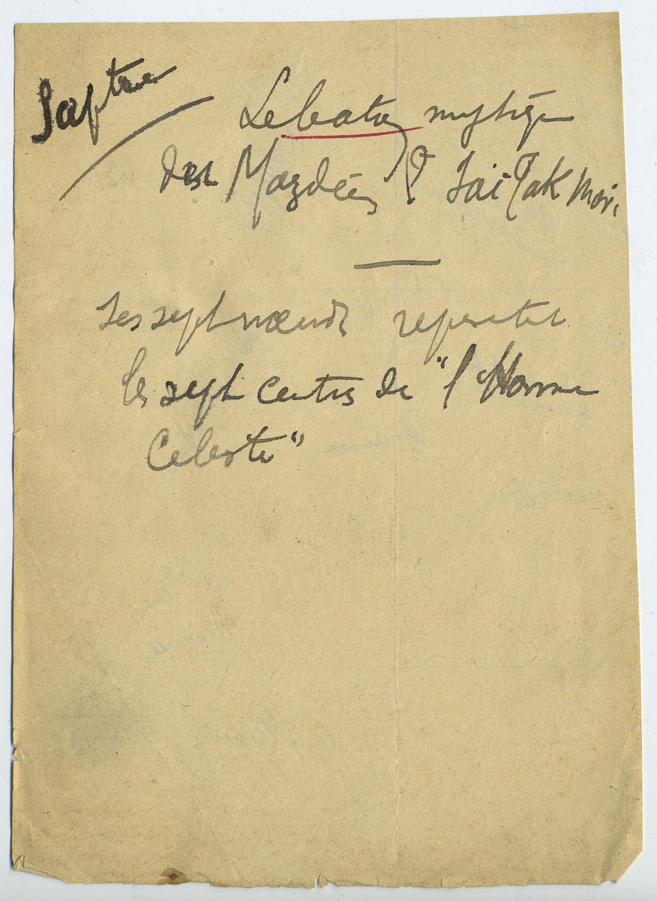 Saptua
Le baton mystiqe
des Mazdéens
Les sept nœuds represetent
les sept centres de "l'Homme
Celeste"